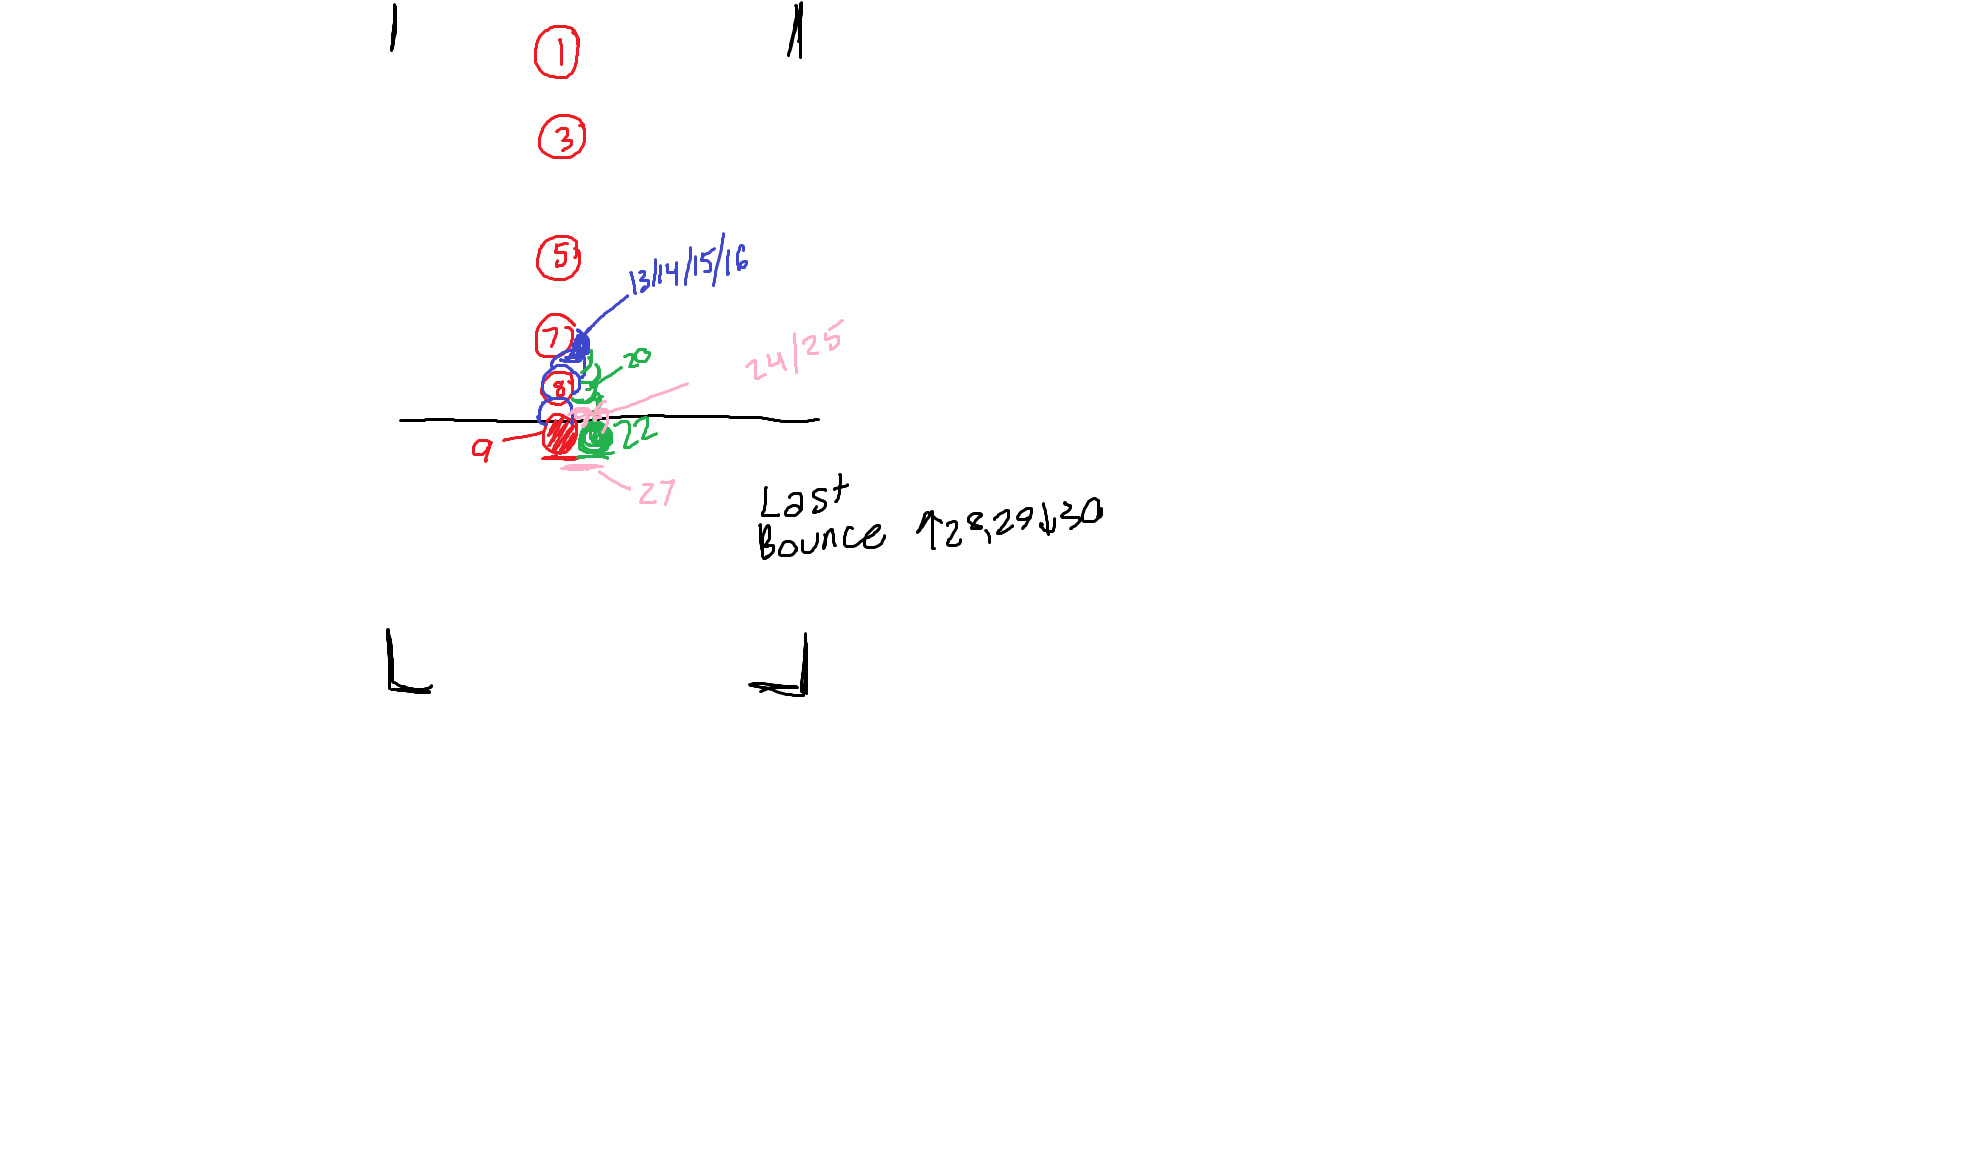 1
3
5
13/14/15/16
7
20
24/25
8
9
22
27
Last
Bounce ↑28,29↓30